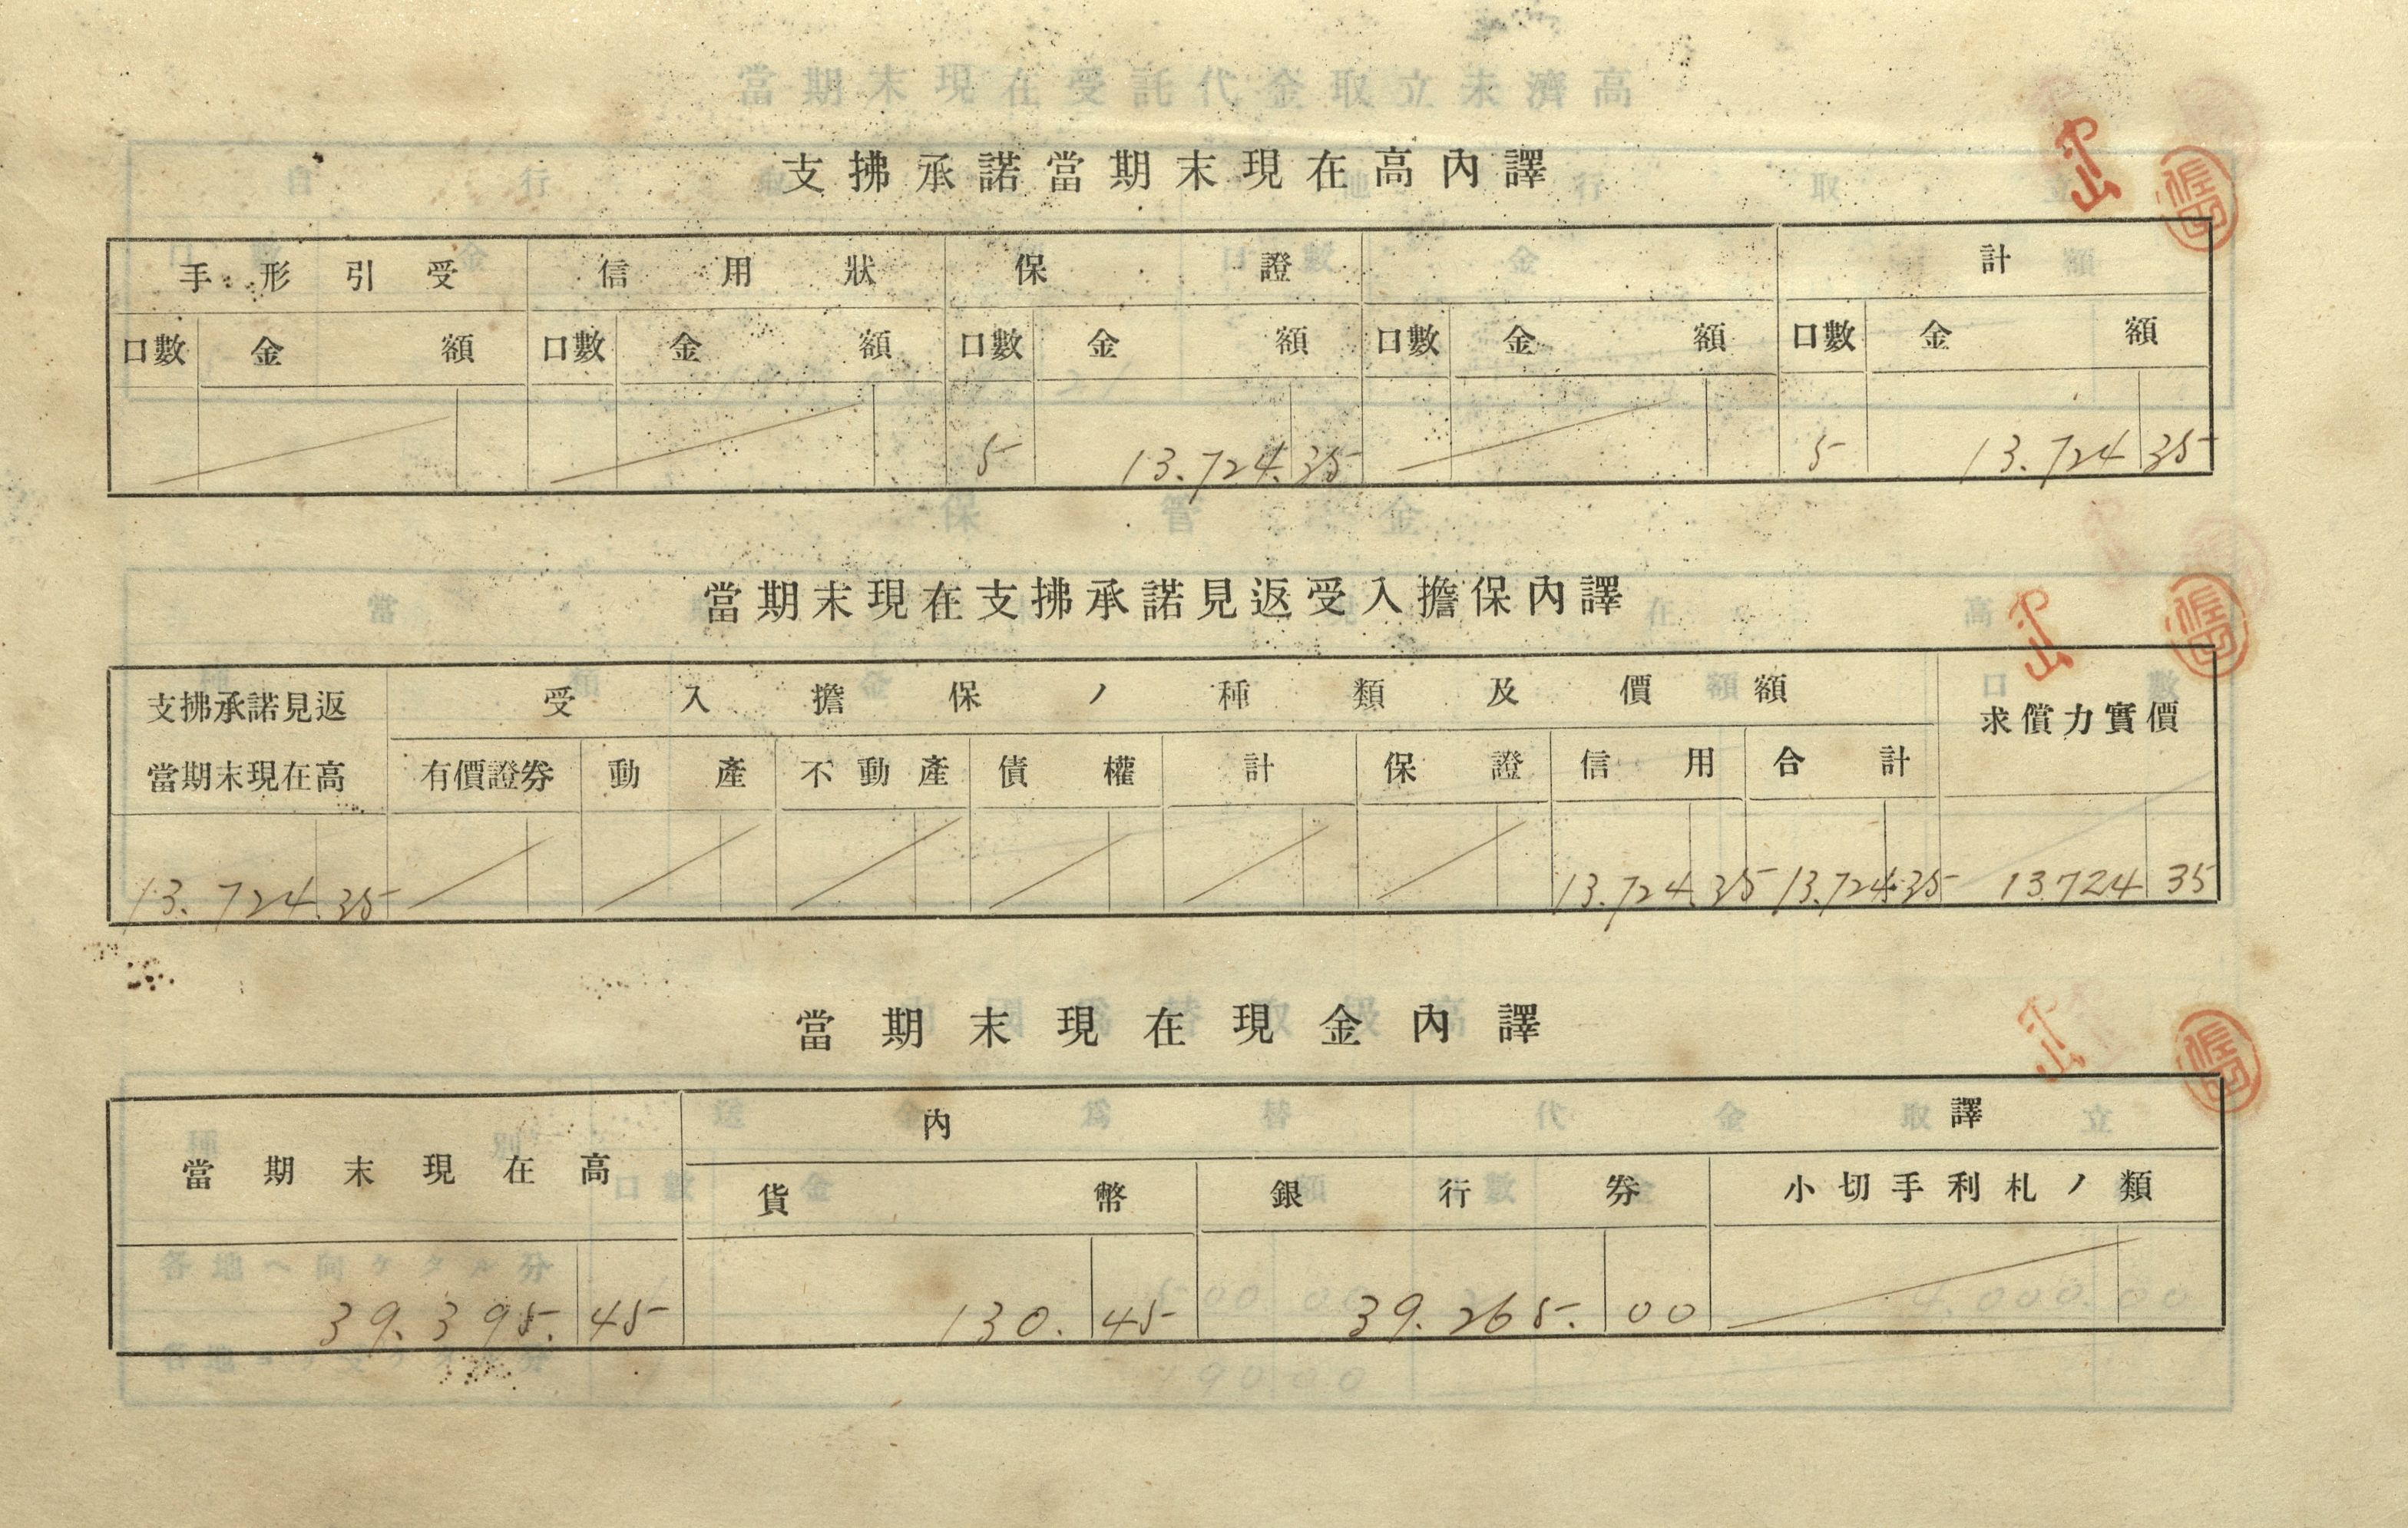 支拂承諾當期末現在高內譯
手形引受 信用狀 保證 計
口數 金額 口數 金額 口數 金額 口數 金額 口數 金額
5 13.724.35 5 13.724 35
當期末現在支拂承諾見返受入擔保內譯
支拂承諾見返當期末現在高 受入擔保ノ種類及價額 求償力實價
有價證券 動產 不動產 債權 計 保證 信用 合計
13.724.35 13.724.35 13.724.35 13724 35
當期末現在現金內譯
當期末現在高 內譯
貨幣 銀行券 小切手利札ノ類
39.395.45 130.45 39.265.00